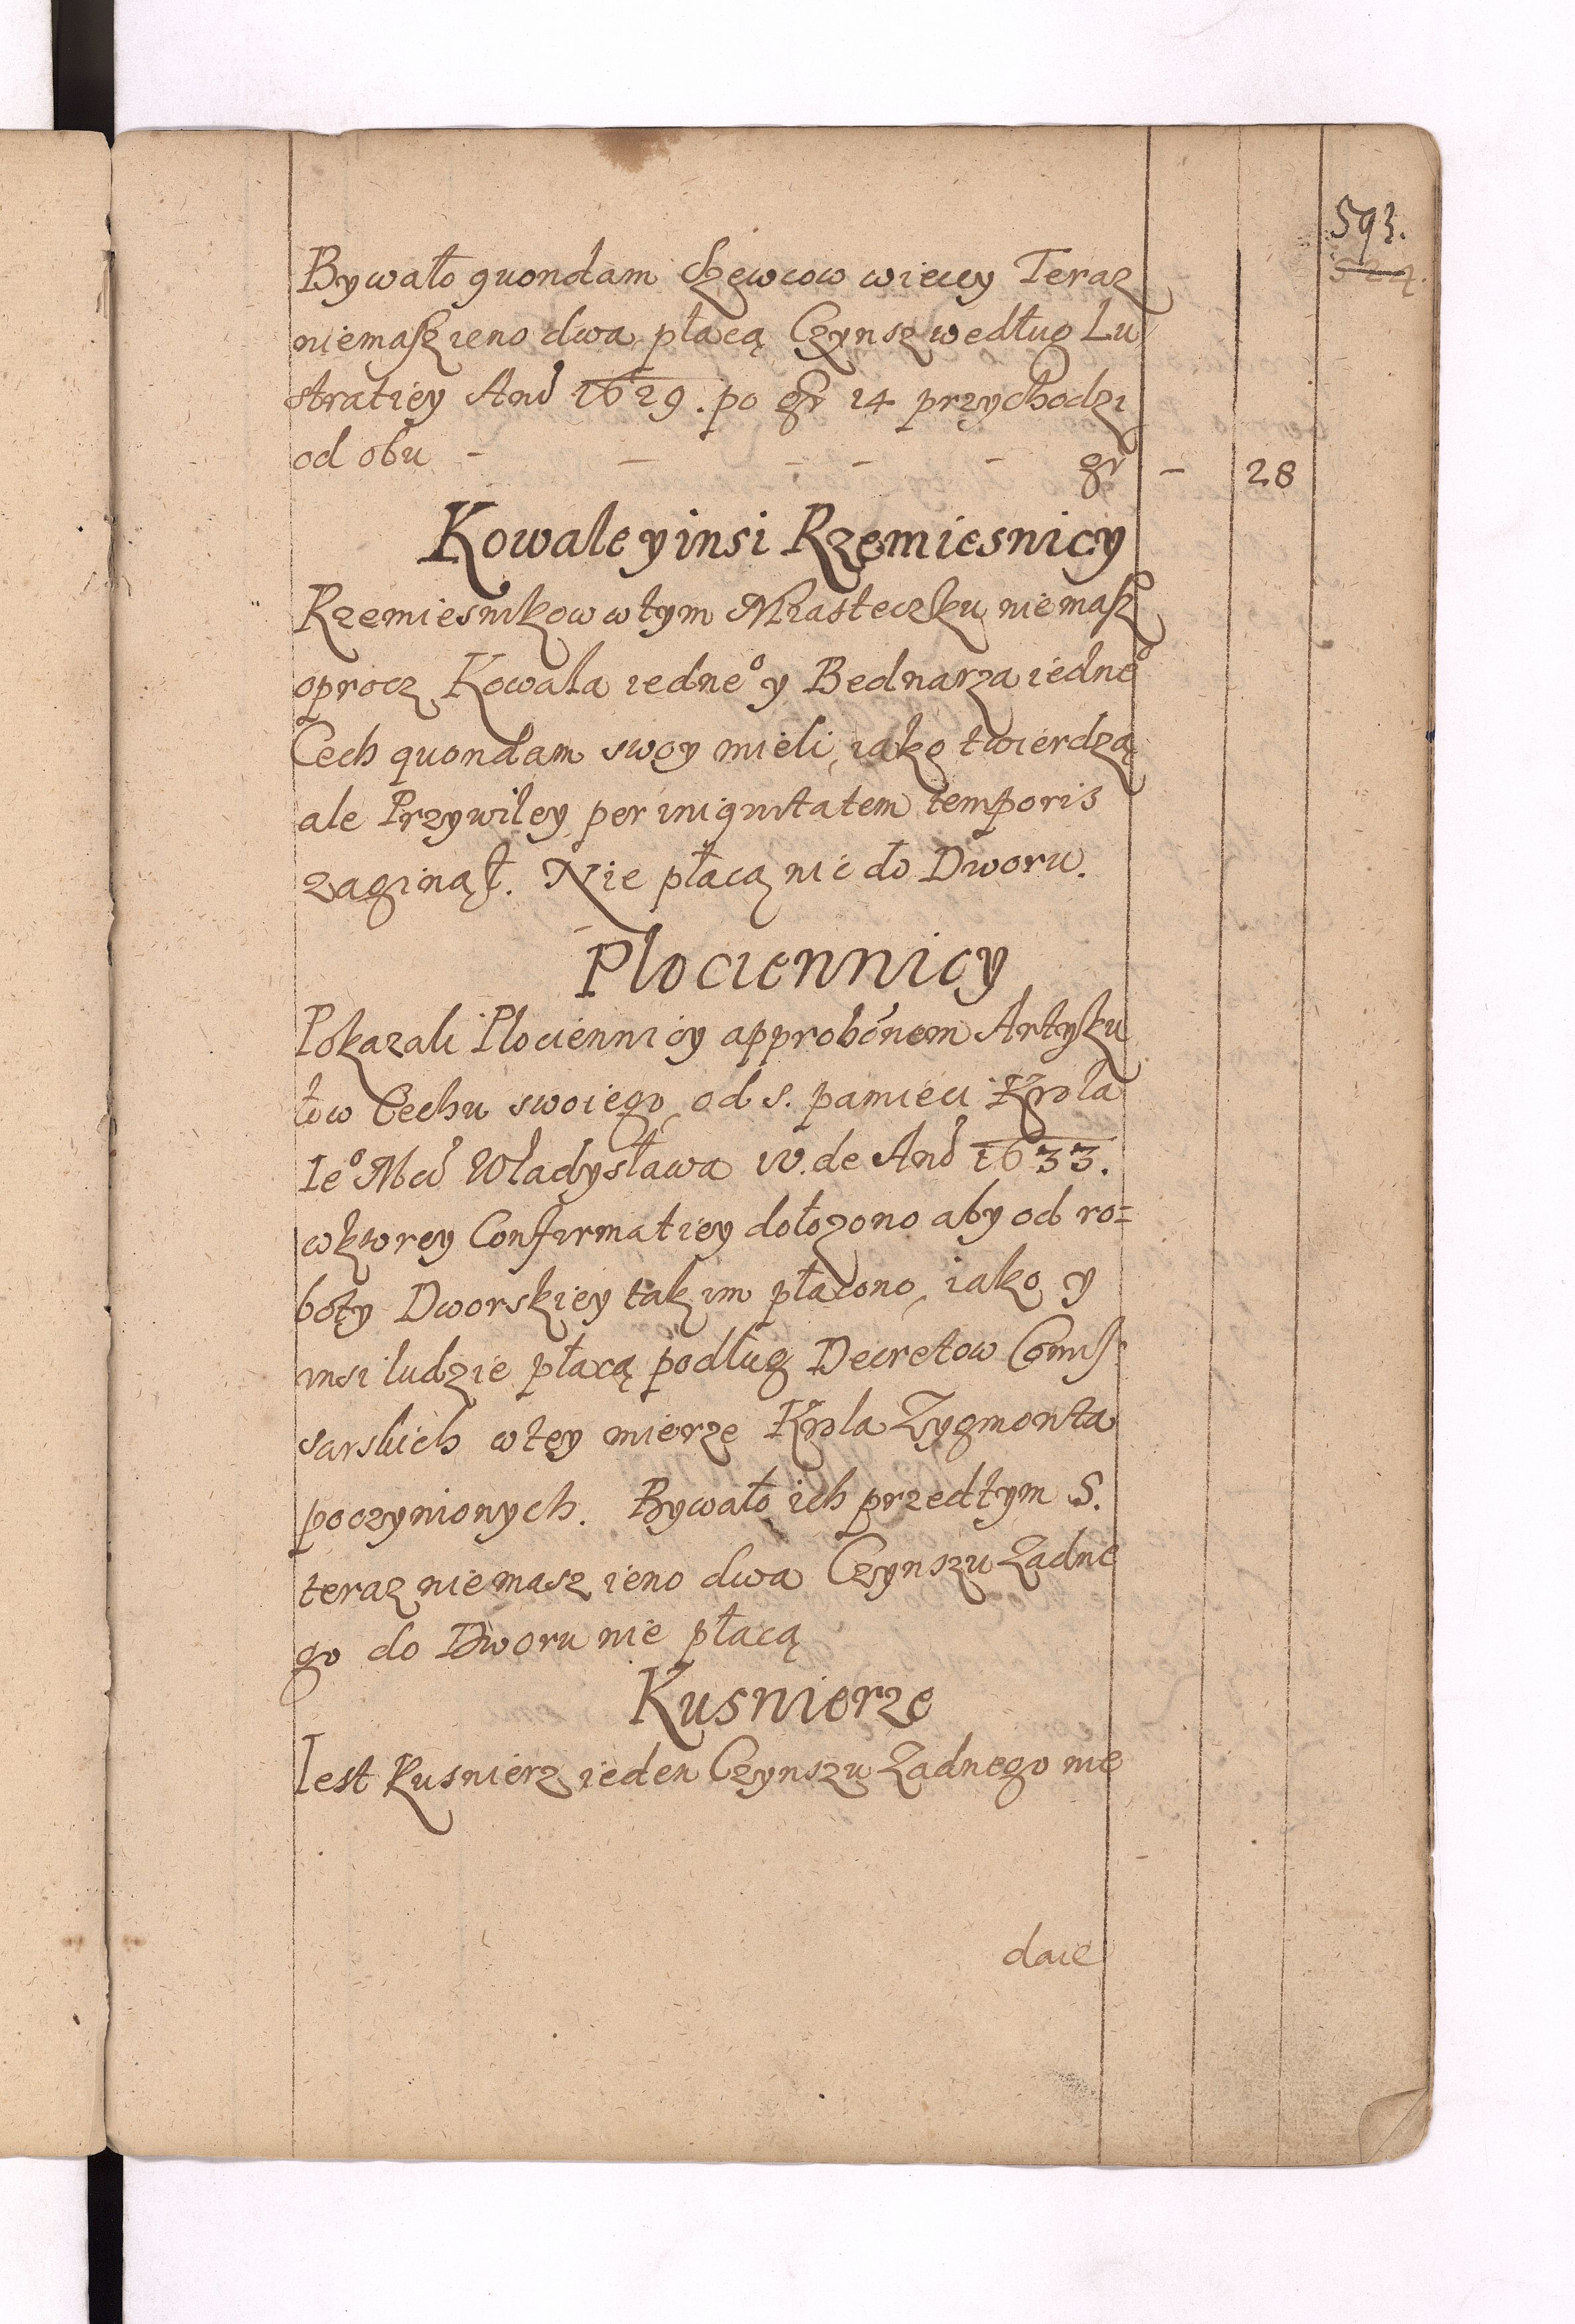 593.
Bywało quondam Szewcow wiecey Teraz
niemasz ieno dwa, płacą Czynsz według Lu
stratiey Anõ 1629. po gr 14 przychodzi
od obu - - - - - gr - 28
Kowale y insi Rzemiesnicy
Rzemiesnikow w tym Miasteczku niemasz
oprocz Kowala iedneº y Bednarza iedneº
Cech quondam swoy mieli, iako twierdzą
ale Przywiley per iniquitatem temporis
zaginął. Nie płacą nic do Dworu.
Plociennicy
Pokazali Plociennicy approbõnem Artyku
łow Cechu swoiego, od s. pamieci Krola
Ieº Mci Władysława IV. de Anõ 1633.
w ktorey Confirmatiey dołozono aby od ro=
boty Dworskiey tak im płacono, iako y
insi ludzie płacą podług Decretow Comis
sarskich w tey mierze Krola Zygmonta
poczynionych. Bywało ich przedtym S.
teraz niemasz ieno dwa Czynszu Zadne
go do Dworu nie płacą
Kusnierze
Iest Kusnierz ieden Czynszu Zadnego nie
daie